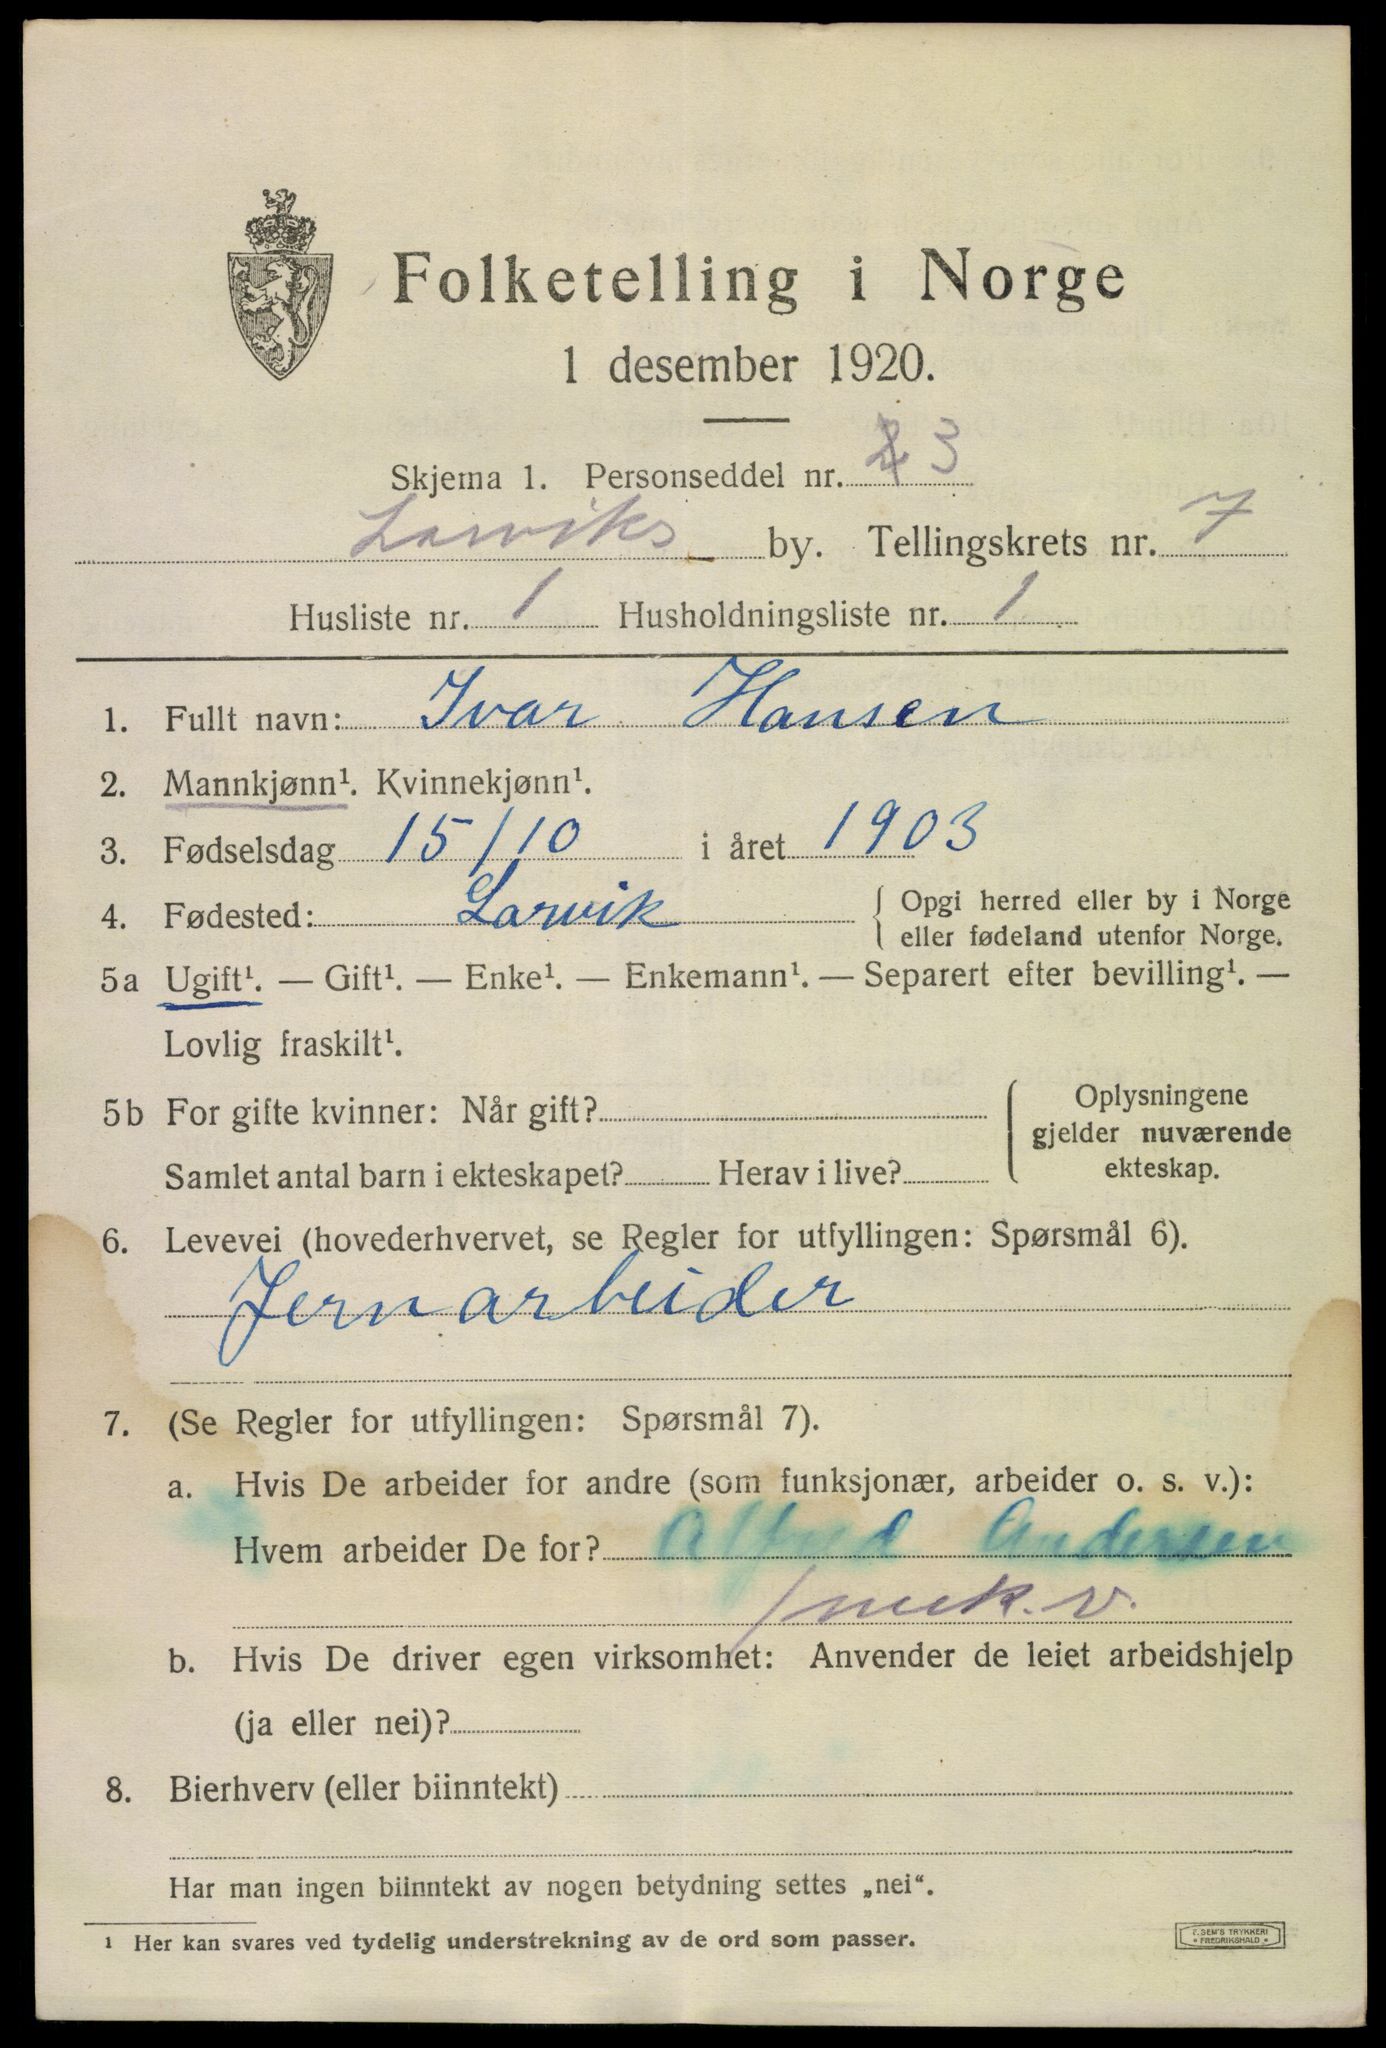 Folketelling i Norge
1 desember 1920.
Skjema 1. Personseddel nr. 3
Larviks by. Tellingskrets nr. 7
Husliste nr. 1 Husholdningsliste nr. 1
1. Fullt navn: Ivar Hansen
2. Mannkjønn¹. Kvinnekjønn¹.
3. Fødselsdag 15/10 i året 1903
4. Fødested: Larvik { Opgi herred eller by i Norge
eller fødeland utenfor Norge.
5a Ugift¹. — Gift¹. — Enke¹. — Enkemann¹. — Separert efter bevilling¹. —
Lovlig fraskilt¹.
5b For gifte kvinner: Når gift?
Samlet antal barn i ekteskapet? Herav i live?
{ Oplysningene
gjelder nuværende
ekteskap.
6. Levevei (hovederhvervet, se Regler for utfyllingen: Spørsmål 6).
Jernarbeider
7. (Se Regler for utfyllingen: Spørsmål 7).
a. Hvis De arbeider for andre (som funksjonær, arbeider o. s. v.):
Hvem arbeider De for? Alfred Andersen
/ mek. v.
b. Hvis De driver egen virksomhet: Anvender de leiet arbeidshjelp
(ja eller nei)?
8. Bierhverv (eller biinntekt)
Har man ingen biinntekt av nogen betydning settes „nei“.
¹ Her kan svares ved tydelig understrekning av de ord som passer.
SEM'S TRYKKERI
• FREDRIKSHALD •